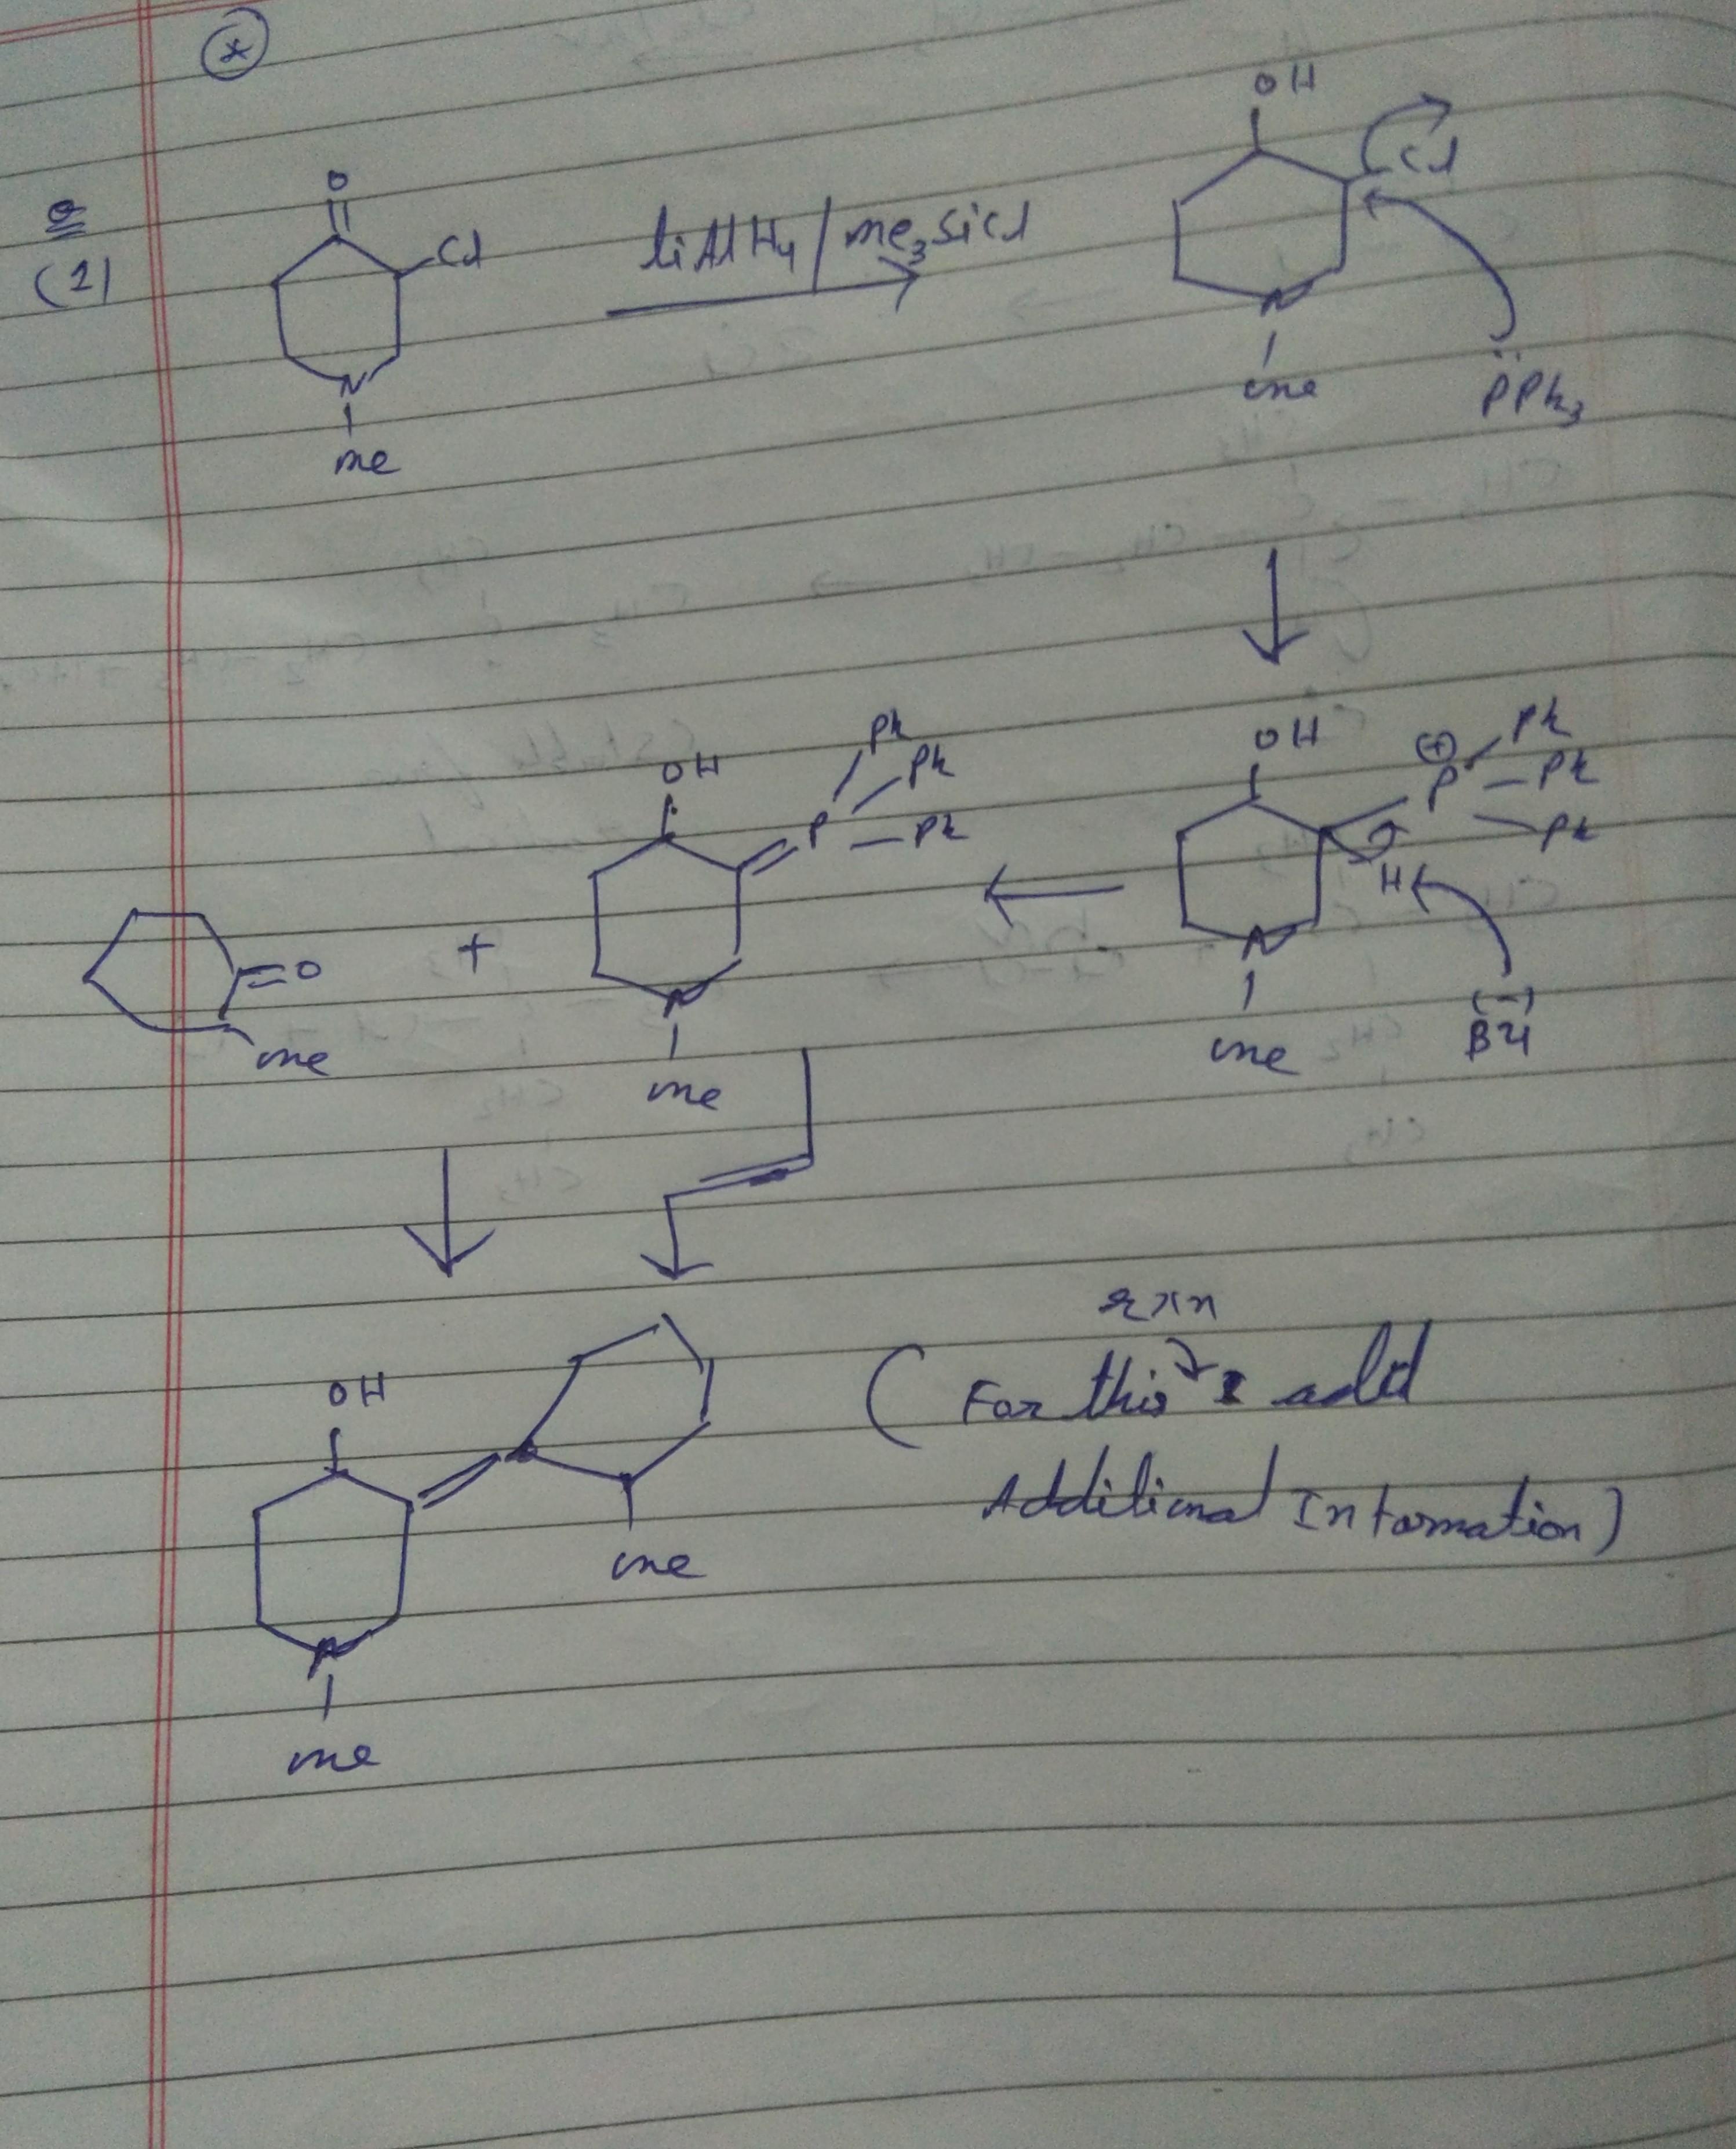 *
Q
(1)
O
Cl
N
me
liAlH4/me3sicl
OH
Cl
N
me
PPh3
OH
P
Ph
Ph
Ph
H
N
me
(-)
Bu
OH
P
Ph
Ph
Ph
N
me
+
O
me
OH
N
me
me
rxn
(For this add
Additional Information)